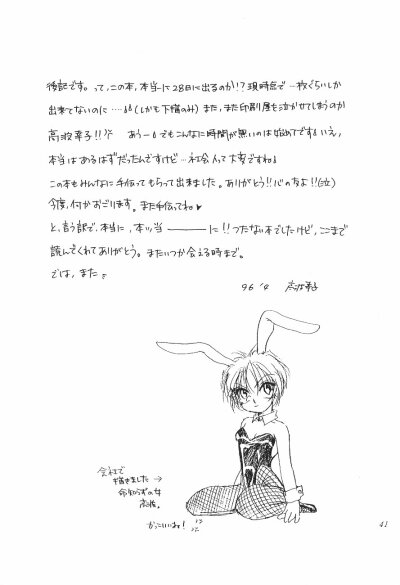 後記です。って、この本、本当に28日に出るのか!? 現時点で一枚ぐらいしか
出来てないのに…(しかも下描のみ)また、また印刷屋を泣かせてしまうのか
高波幸子!! あうーでもこんなに時間が無いのは始めてです!いえ、
本当はあるはずだったんですけど…社会人って大変ですね。
この本もみんなに手伝ってもらって出来ました。ありがとう!!心の友よ!!(泣)
今度、何かおごります。また手伝ってね♥
と、言う訳で、本当に、本ッ当————に!!つたない本でしたけど、ここまで
読んでくれてありがとう。またいつか会える時まで。
では、また。
96 '4
会社で
描きました →
命知らずの女
高波。
かっこいいねェ!
41